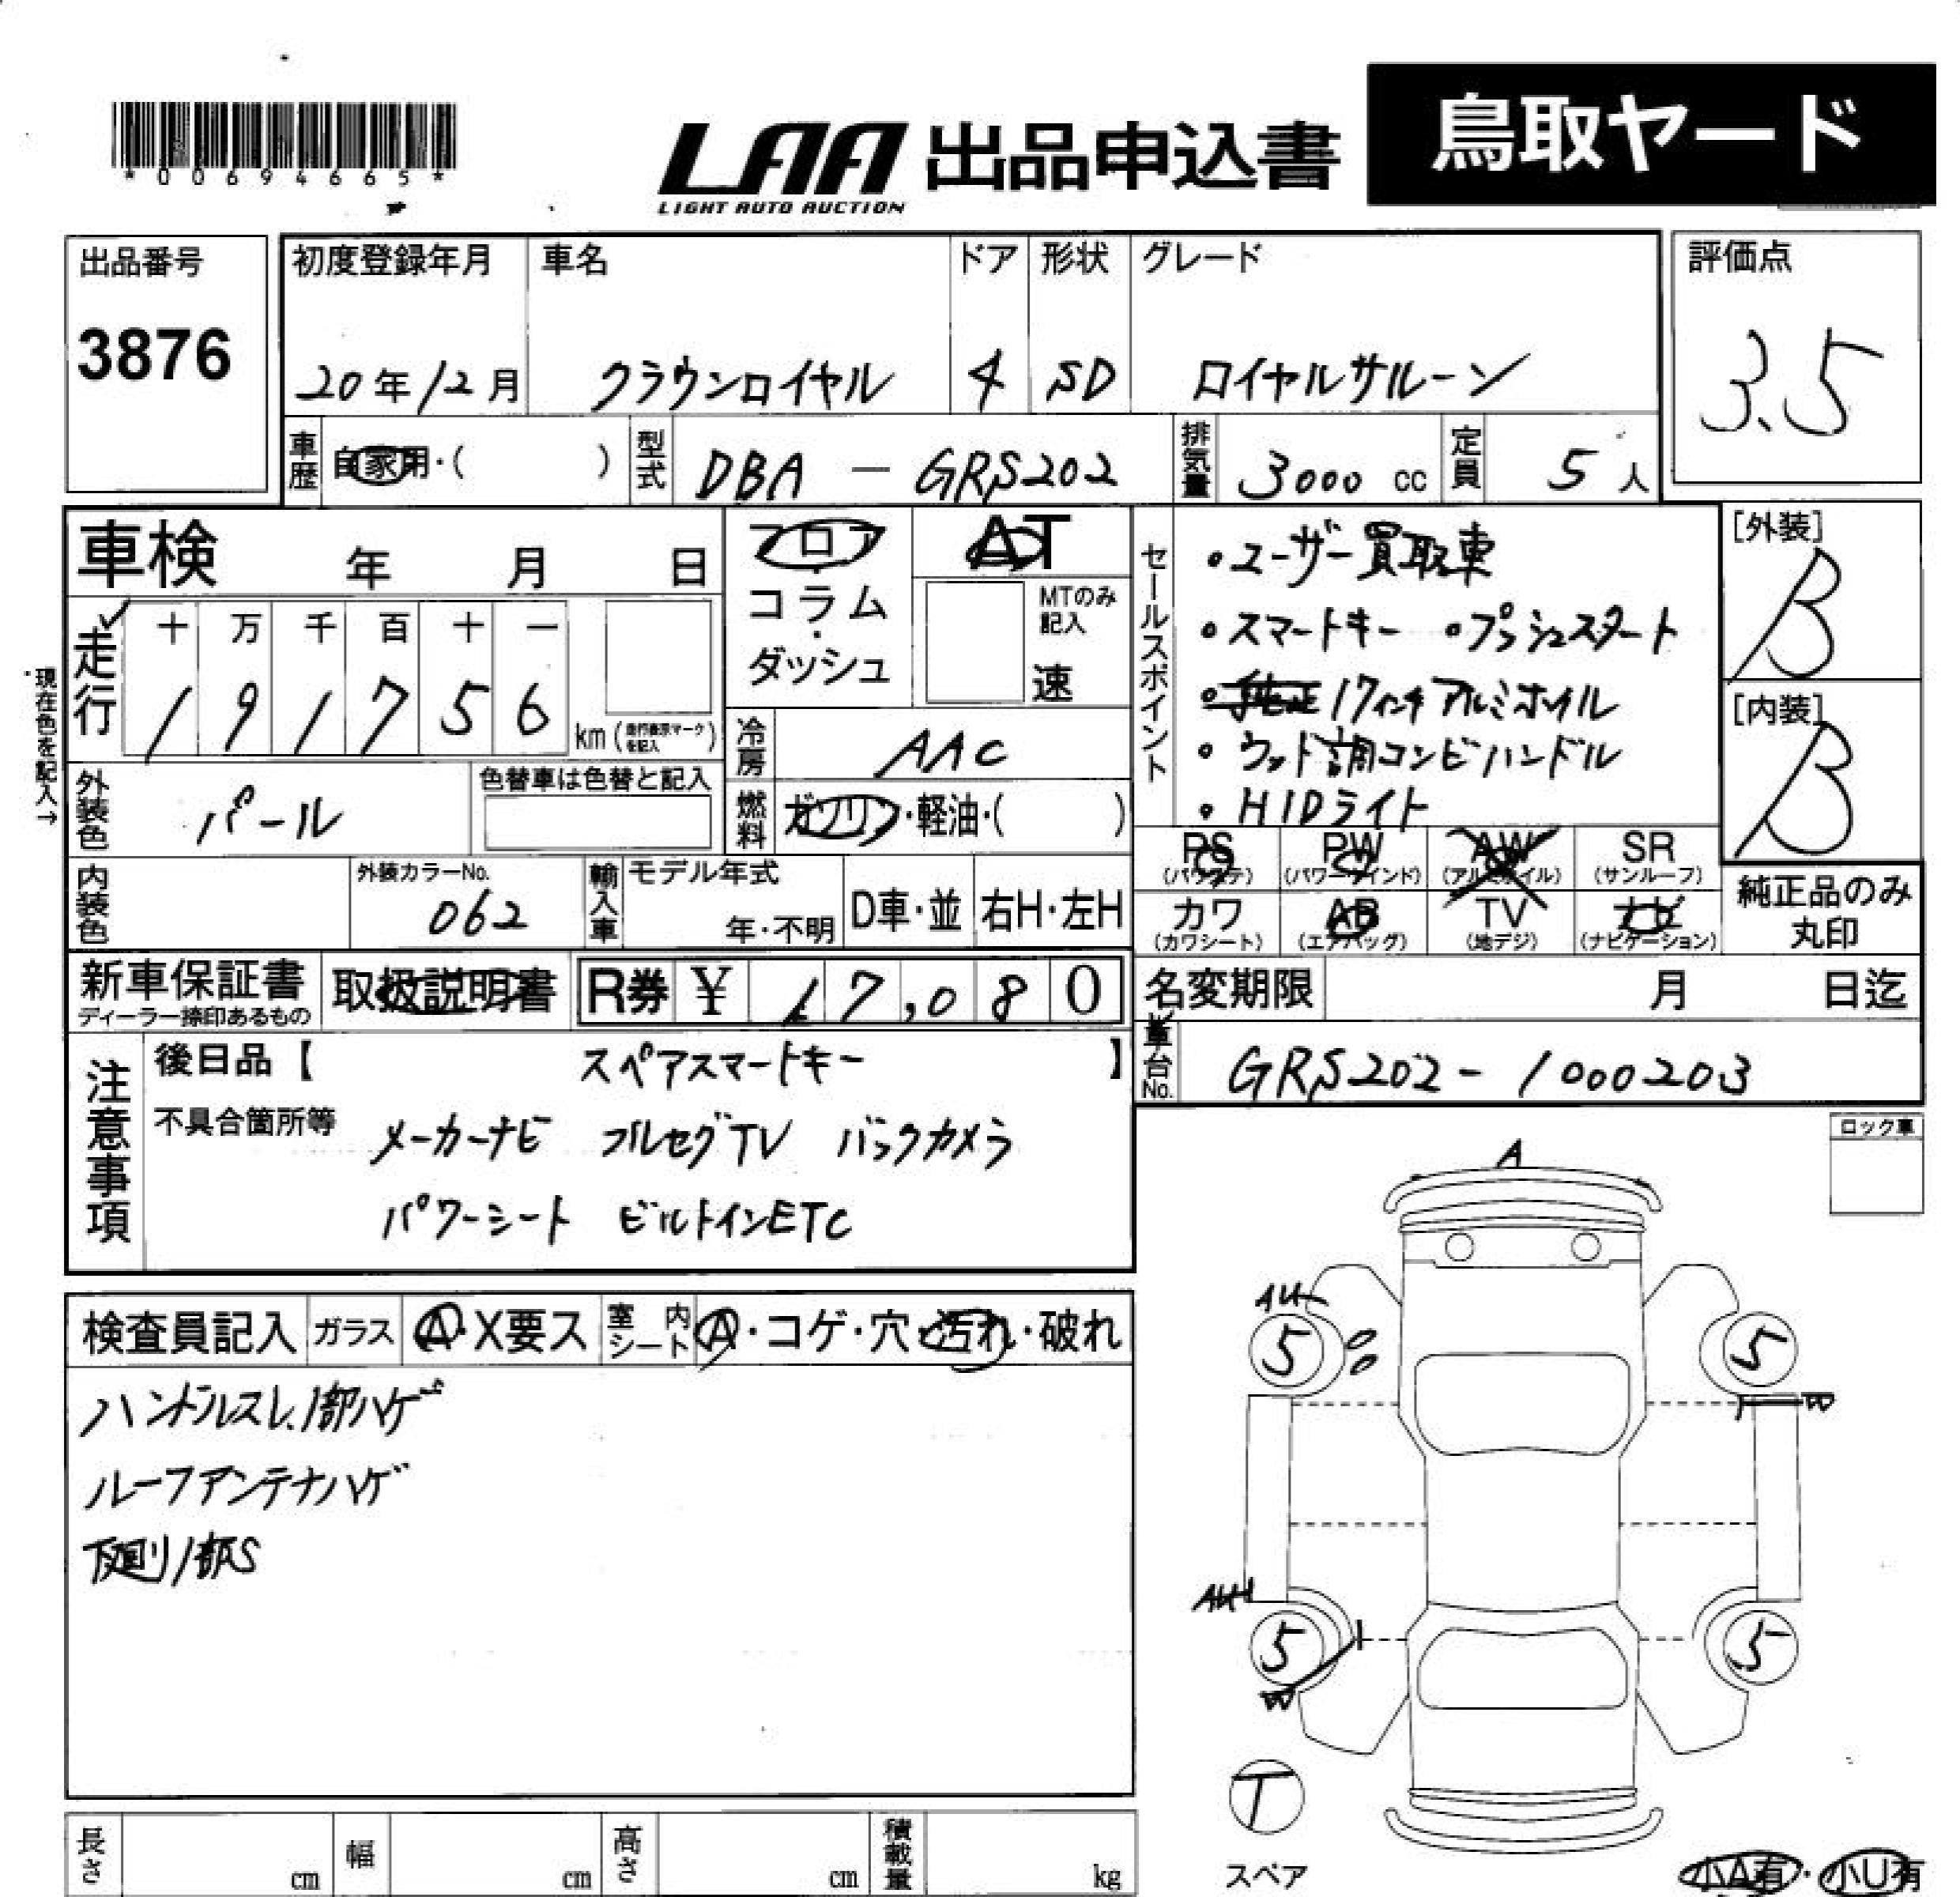 *00694665*
LAA 出品申込書 鳥取ヤード
LIGHT AUTO AUCTION
出品番号
3876
初度登録年月 車名 ドア 形状 グレード
20年12月 クラウンロイヤル 4 SD ロイヤルサルーン
評価点
3.5
車歴 自家用・( ) 型式 DBA - GRS202 排気量 3000 cc 定員 5 人
車検 年 月 日
フロア・コラム・ダッシュ
AT
MTのみ記入
速
走行 十 万 千 百 十 一
1 9 1 7 5 6 km (走行表示マークを記入)
現在色を記入→
冷房 AAC
外装色 パール
色替車は色替と記入
燃料 ガソリン・軽油・( )
内装色
外装カラーNo.
062
輸入車 モデル年式
年・不明 D車・並 右H・左H
セールスポイント
・ユーザー買取車
・スマートキー ・プッシュスタート
・純正17インチアルミホイル
・ウッド調コンビハンドル
・HIDライト
[外装]
B
[内装]
B
PS (パワステ) PW (パワーウインド) AW (アルミホイル) SR (サンルーフ)
カワ (カワシート) AB (エアバッグ) TV (地デジ) ナビ (ナビゲーション)
純正品のみ
丸印
新車保証書 取扱説明書 R券 ¥ 17,080
ディーラー捺印あるもの
名変期限 月 日迄
車台No. GRS202-1000203
注意事項
後日品【 スペアスマートキー 】
不具合箇所等 メーカーナビ フルセグTV バックカメラ
パワーシート ビルトインETC
ロック車
検査員記入 ガラス A・X要ス 室内シート A・コゲ・穴・汚れ・破れ
ハンドルスレ、1部ハゲ
ルーフアンテナハゲ
下廻り1部S
A
AU
5 5
W
AU
5 5
W
T
スペア
小A有・小U有
長さ cm 幅 cm 高さ cm 積載量 kg